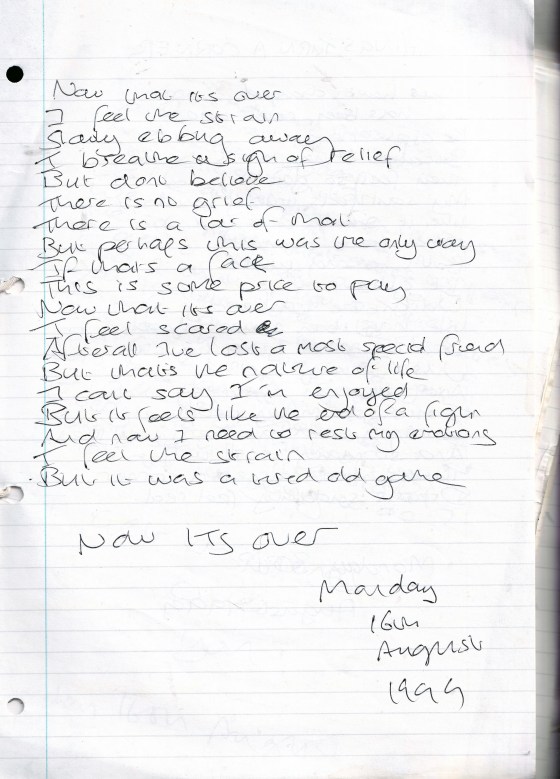 Now that its over
I feel the strain
Slowly ebbing away
I breathe a sigh of relief
But dont believe
There is no grief
There is a lot of that
But perhaps this was the only way
If thats a fact
This is some price to pay
Now that its over
I feel scared
Afterall I've lost a most special friend
But thats the nature of life
I cant say I'm enjoyed
But it feels like the end of a fight
And now I need to rest my emotions
I feel the strain
But it was a tired old game
Now ITs over
Monday
16th
August
1999